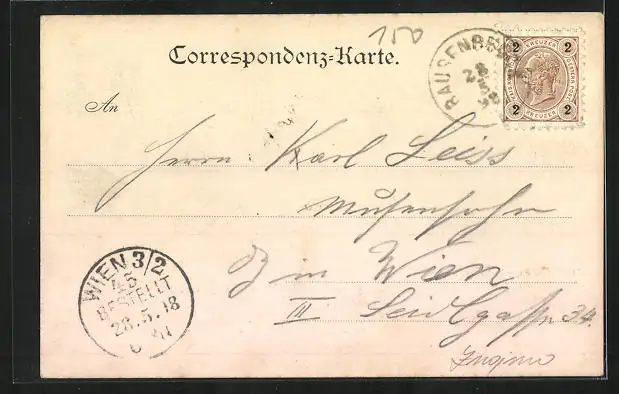 150
Correspondenz-Karte.
RAUSENBR
28
5
98
2 KREUZER 2
2 KREUZER 2
An
Herrn Karl Leiss
Musensohn
in Wien
III Seidlgasse 34.
WIEN 3/2
45
BESTELLT
28.5.98